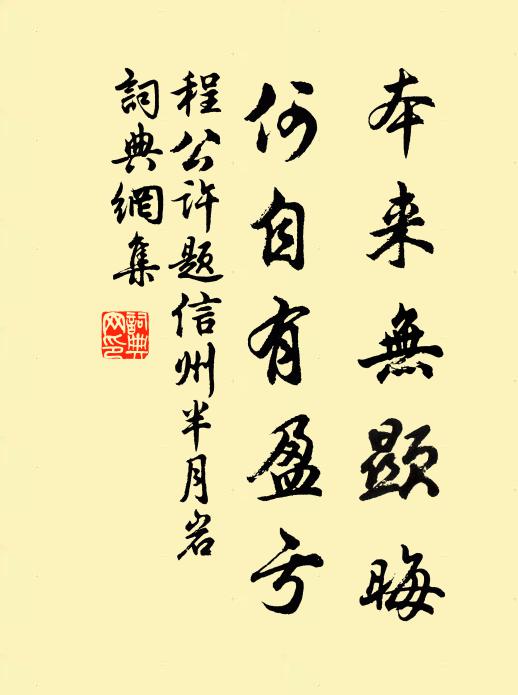 本来無顕晦
何自有盈亏
程公许题信州半月岩
詞典網集
詞典网印